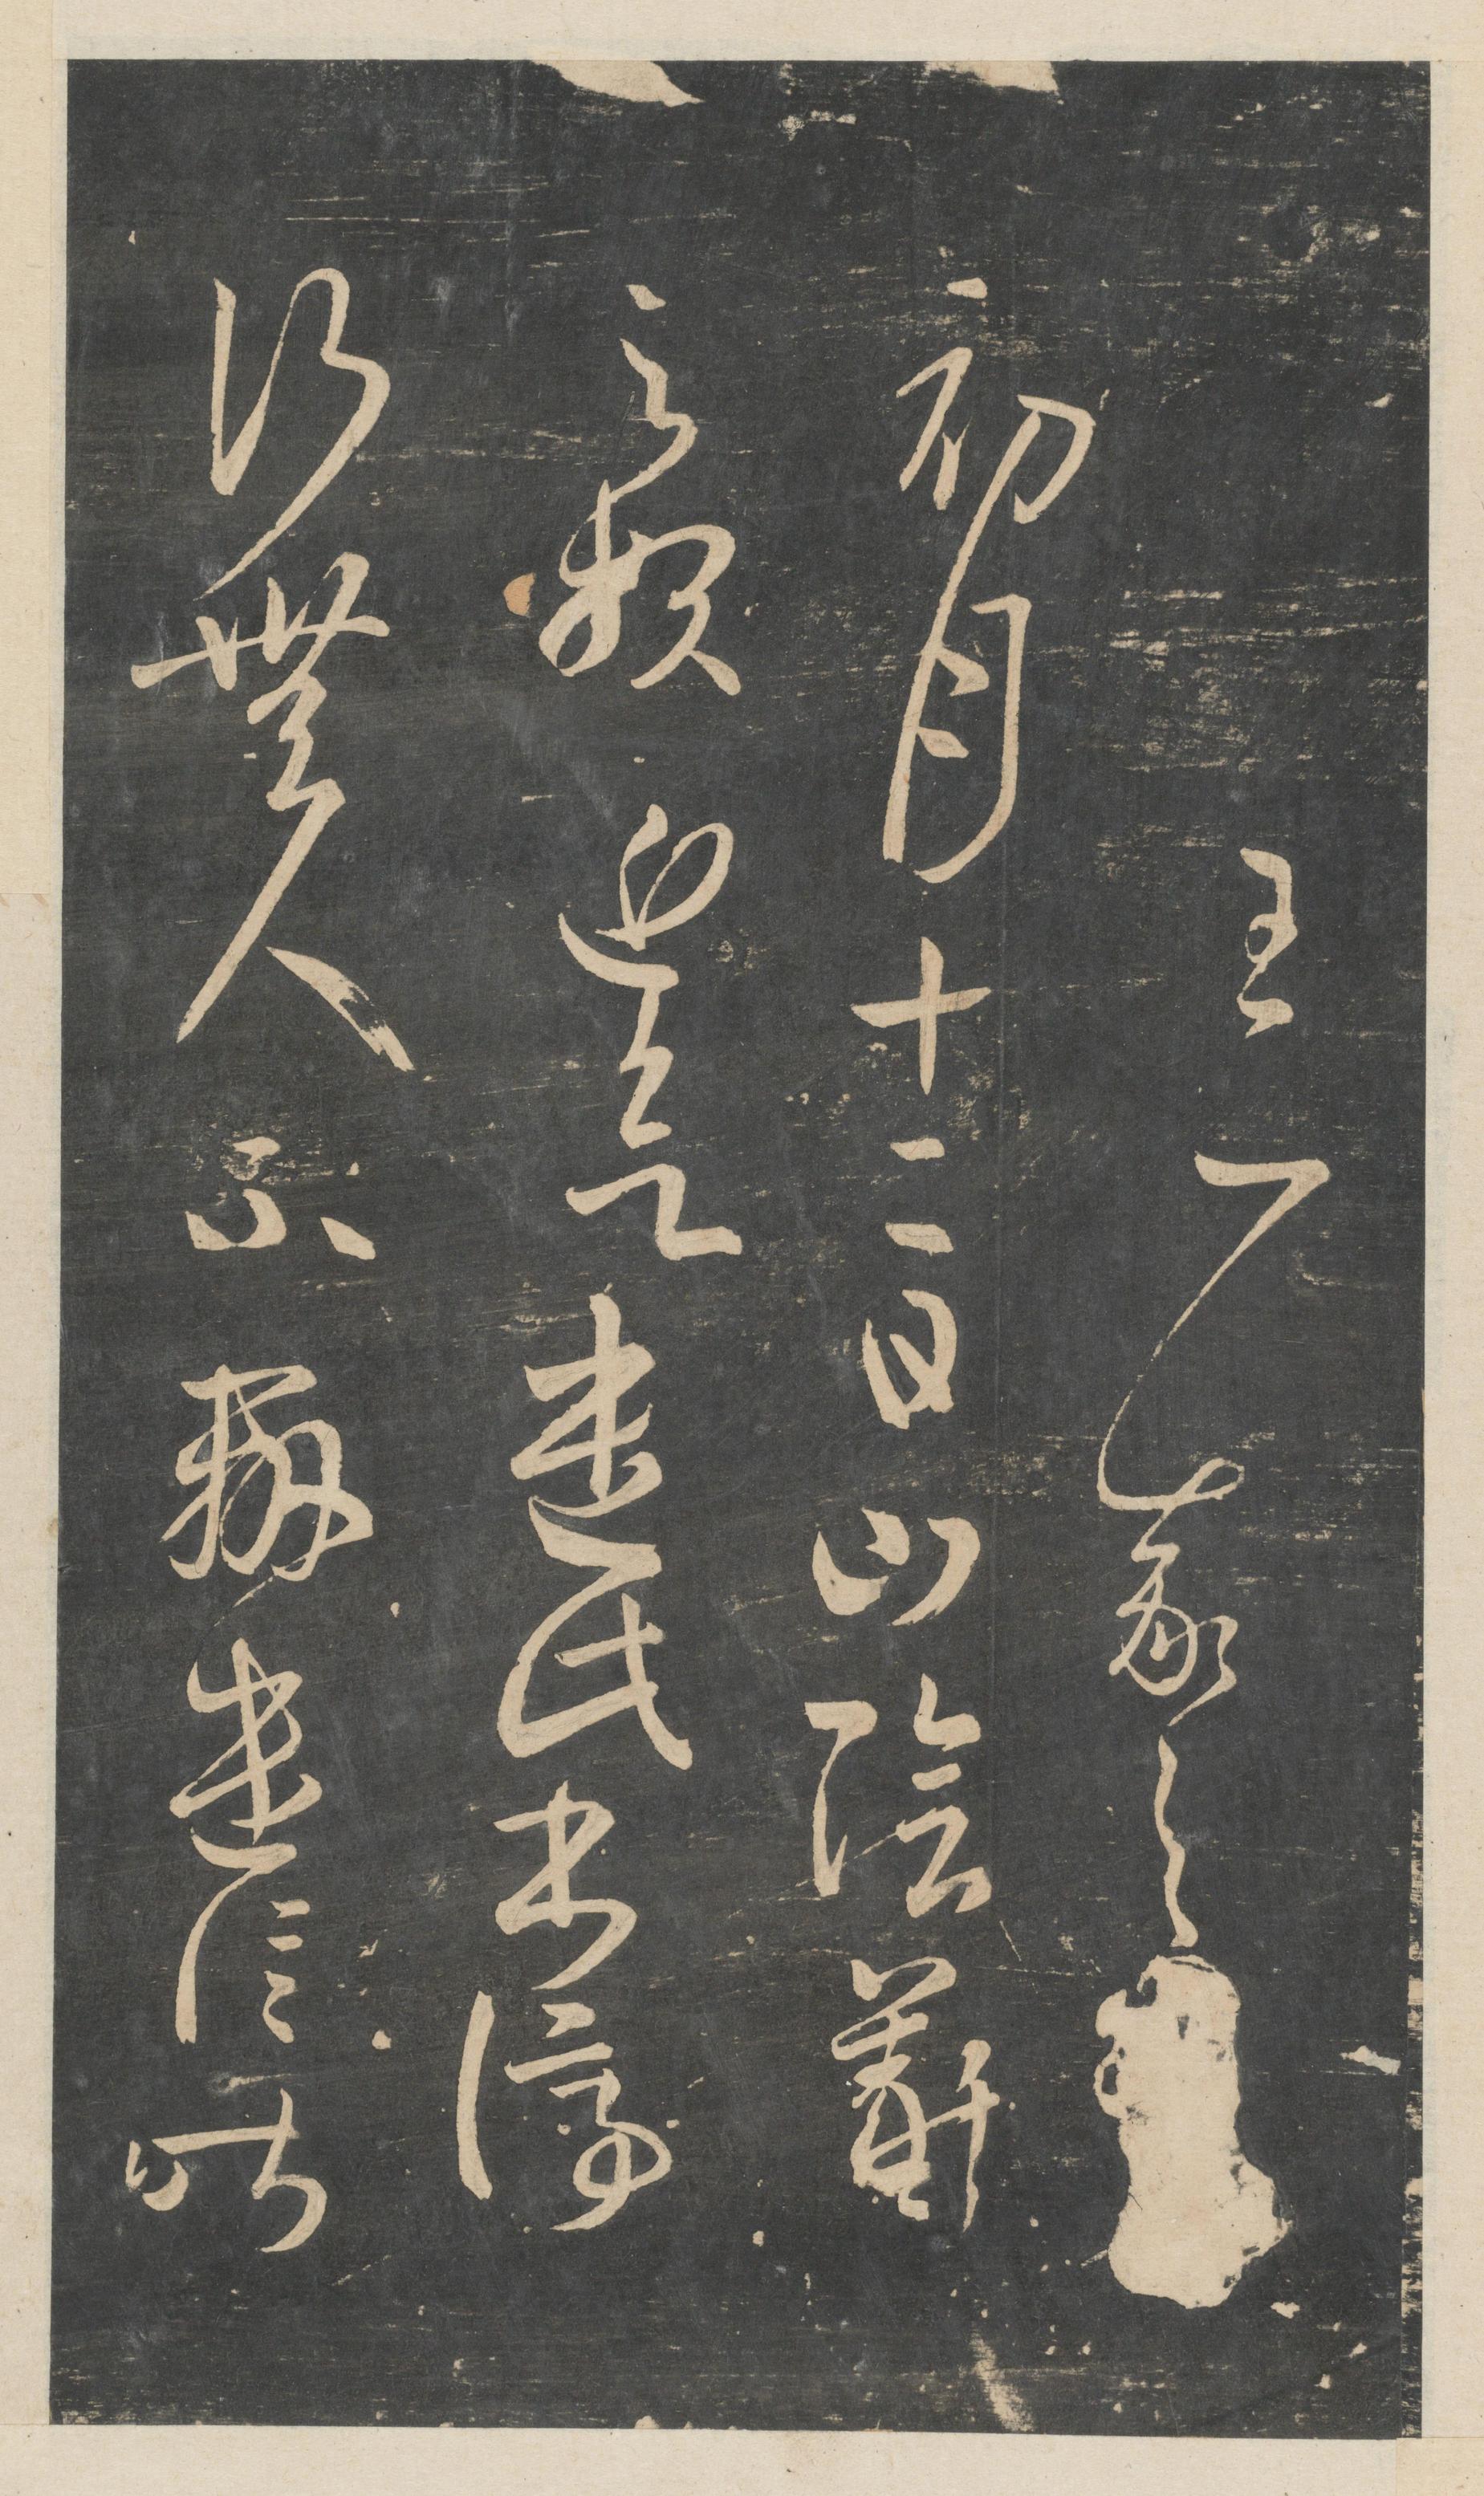 羲之
初月十二日山陰羲
之報近欲遣此書停
行無人不辦遣信昨